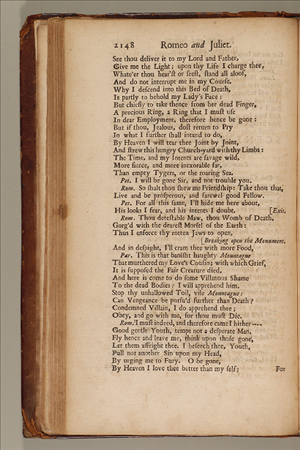 2148 Romeo and Juliet.
See thou deliver it to my Lord and Father,
Give me the Light; upon thy Life I charge thee,
Whate'er thou hear'st or seest, stand all aloof,
And do not interrupt me in my Course.
Why I descend into this Bed of Death,
Is partly to behold my Lady's Face:
But chiefly to take thence from her dead Finger,
A precious Ring, a Ring that I must use
In dear Employment, therefore hence be gone:
But if thou, Jealous, dost return to Pry
In what I further shall intend to do,
By Heaven I will tear thee Joint by Joint,
And strew this hungry Church-yard with thy Limbs:
The Time, and my Intents are savage wild,
More fierce, and more inexorable far,
Than empty Tygers, or the roaring Sea.
Pet. I will be gone Sir, and not trouble you.
Rom. So shalt thou shew me Friendship: Take thou that,
Live and be prosperous, and farewel good Fellow.
Pet. For all this same, I'll hide me here about,
His looks I fear, and his intents I doubt. [Exit.
Rom. Thou detestable Maw, thou Womb of Death,
Gorg'd with the dearest Morsel of the Earth:
Thus I enforce thy rotten Jaws to open,
[Breaking open the Monument.
And in despight, I'll cram thee with more Food,
Par. This is that banisht haughty Mountague
That murthered my Love's Cousin; with which Grief,
It is supposed the Fair Creature died,
And here is come to do some Villanous Shame
To the dead Bodies: I will apprehend him.
Stop thy unhallowed Toil, vile Mountague:
Can Vengeance be pursu'd further than Death?
Condemned Villain, I do apprehend thee;
Obey, and go with me, for thou must Die.
Rom. I must indeed, and therefore came I hither----
Good gentle Youth, tempt not a desperate Man,
Fly hence and leave me, think upon those gone,
Let them affright thee. I beseech thee, Youth,
Pull not another Sin upon my Head,
By urging me to Fury. O be gone,
By Heaven I love thee better than my self; For